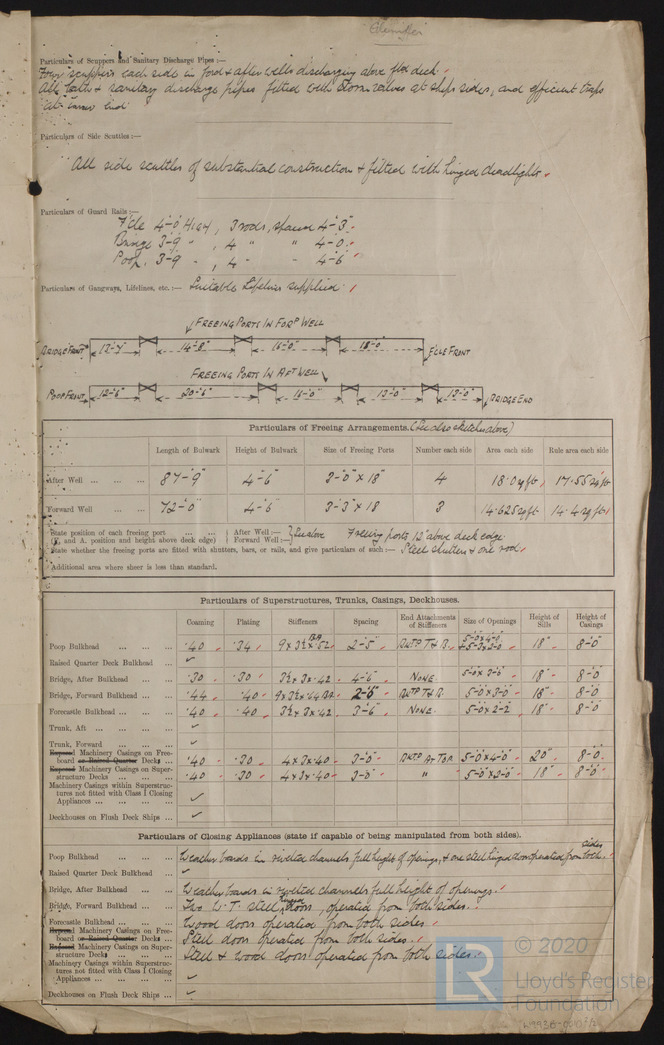 Particulars of Scuppers and Sanitary Discharge Pipes :—
Four scuppers each side in ford & after wells discharging above deck.
All baths & sanitary discharge pipes fitted with storm valves at ships sides, and efficient traps
at inner end
Particulars of Side Scuttles :—
All side scuttles of substantial construction & fitted with hinged deadlights.
Particulars of Guard Rails :—
F'cle 4'-0" High, 3 rods, spaced 4'-3"
Bridge 3'-9" " , 4 " " 4'-0"
Poop. 3'-9 " , 4 " " 4'-6"
Particulars of Gangways, Lifelines, etc. :— Suitable lifelines supplied.
FREEING PORTS IN FORD WELL
BRIDGE FRONT 14'-8" 16'-0" 18'-0" F'CLE FRONT
FREEING PORTS IN AFT WELL
POOP FRONT 12'-6" 20'-6" 16'-0" 13'-0" 13'-0" BRIDGE END
Particulars of Freeing Arrangements. (See also sketches above)
Length of Bulwark Height of Bulwark Size of Freeing Ports Number each side Area each side Rule area each side
After Well 87'-9" 4'-6" 3'-0" x 18" 4 18.0 sq ft 17.55 sq ft
Forward Well 72'-0" 4'-6" 3'-3" x 18 3 14.625 sq ft 14.4 sq ft
State position of each freeing port After Well :— See above Freeing ports 12" above deck edge.
(F. and A. position and height above deck edge) Forward Well :—
State whether the freeing ports are fitted with shutters, bars, or rails, and give particulars of such :— Steel shutters & one rod.
Additional area where sheer is less than standard.
Particulars of Superstructures, Trunks, Casings, Deckhouses.
Coaming Plating Stiffeners Spacing End Attachments of Stiffeners Size of Openings Height of Sills Height of Casings
Poop Bulkhead .40 .34 9 x 3½ x .52 BA 2'-5" BKTD T & B 5'-0 x 4'-0 & 5'-3 x 2'-0 18" 8'-0"
Raised Quarter Deck Bulkhead ✓
Bridge, After Bulkhead .30 .30 3½ x 3 x .42 4'-6" NONE. 5'-0 x 3'-6 18" 8'-0
Bridge, Forward Bulkhead .44 .40 9 x 3½ x .64 BA 2'-6" BKTD T & B 5'-0 x 3'-0 18" 8'-0
Forecastle Bulkhead .40 .40 3½ x 3 x .42 3'-6 NONE. 5'-0 x 2'-2 18" 8'-0
Trunk, Aft ✓
Trunk, Forward ✓
Exposed Machinery Casings on Free-
board or Raised Quarter Decks .40 .30 4 x 3 x .40 3'-0" BKTD AT TOP 5'-0 x 4'-0 20" 8'-0
Exposed Machinery Casings on Super-
structure Decks .40 .30 4 x 3 x .40 3'-0" " 5'-0 x 2'-0 18" 8'-0"
Machinery Casings within Superstruc-
tures not fitted with Class I Closing
Appliances ✓
Deckhouses on Flush Deck Ships ✓
Particulars of Closing Appliances (state if capable of being manipulated from both sides).
Poop Bulkhead Weather boards in riveted channels full height of openings, & one steel hinged door operated from both sides.
Raised Quarter Deck Bulkhead ✓
Bridge, After Bulkhead Weather boards in riveted channels full height of openings.
Bridge, Forward Bulkhead Two W.T. steel hinged doors, operated from both sides.
Forecastle Bulkhead Wood doors operated from both sides
Exposed Machinery Casings on Free-
board or Raised Quarter Decks Steel doors operated from both sides.
Exposed Machinery Casings on Super-
structure Decks Steel & wood doors operated from both sides.
Machinery Casings within Superstruc-
tures not fitted with Class I Closing
Appliances ✓
Deckhouses on Flush Deck Ships ✓
LR
© 2020
Lloyd's Register
Foundation